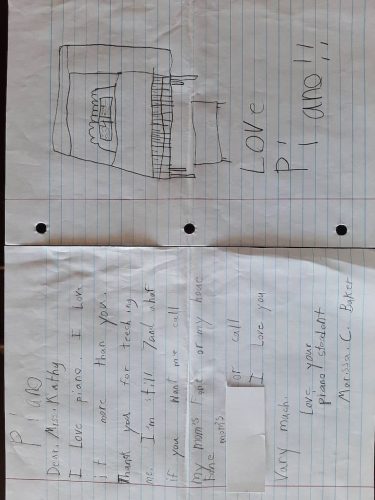 Piano
Dear, Mrs. Kathy
I Love piano. I Love
it more than you.
Thank you for teeching
me. I'm still 7 and what
if you want me call
my mom's fone or my houe
fone moms
or call
I Love you
Vary much.
Love your
piano stoodent
Marissa. C. Baker
Love
Piano!!